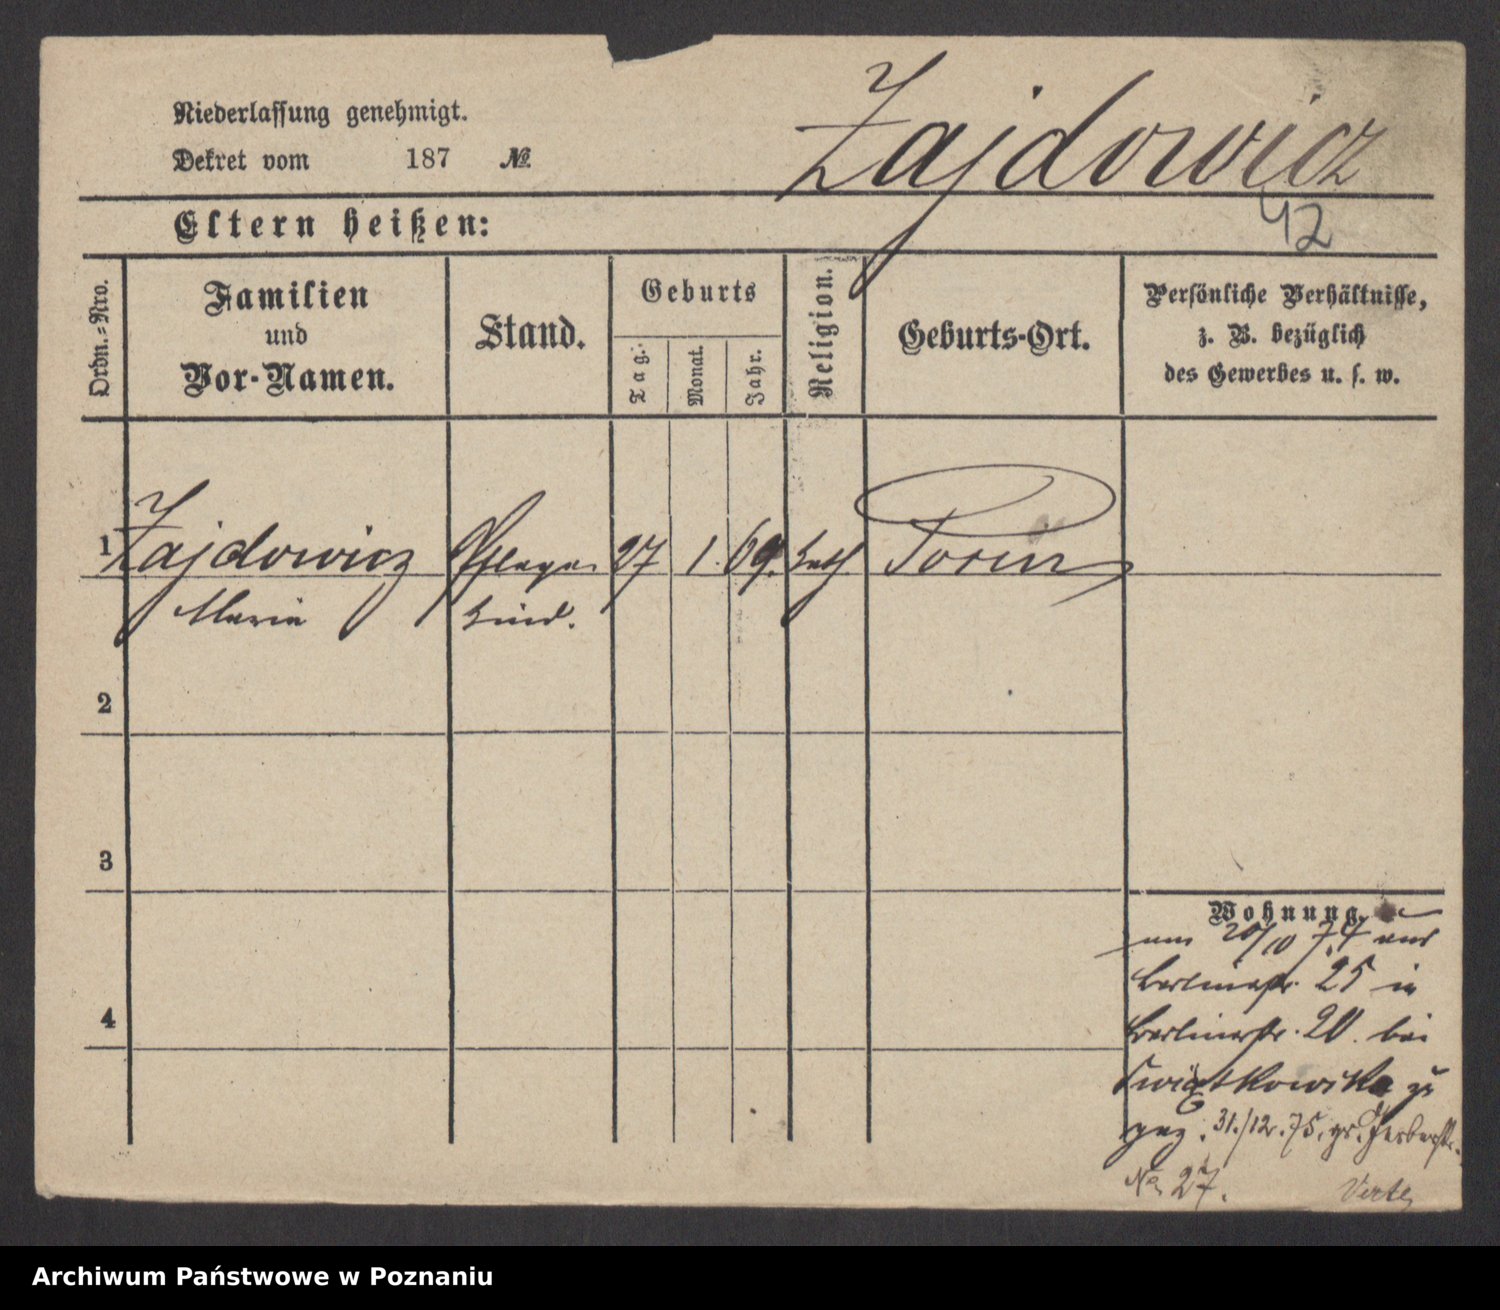 Niederlassung genehmigt.
Dekret vom 187 №
Zajdowicz
42
Eltern heißen:
Ordn.=Nro.
Familien
und
Vor-Namen.
Stand.
Geburts
Tag.
Monat.
Jahr.
Religion.
Geburts-Ort.
Persönliche Verhältnisse,
z. B. bezüglich
des Gewerbes u. s. w.
1 Zajdowicz Pflege 27 1. 69. kath. Posen
Maria kind.
2
3
4
Wohnung.
am 20/10 74 aus
Berlinerstr. 25 in
Berlinerstr. 20. bei
Swiątkowska zu
gez. 31./12.75. gr. Gerberstr.
No 27.